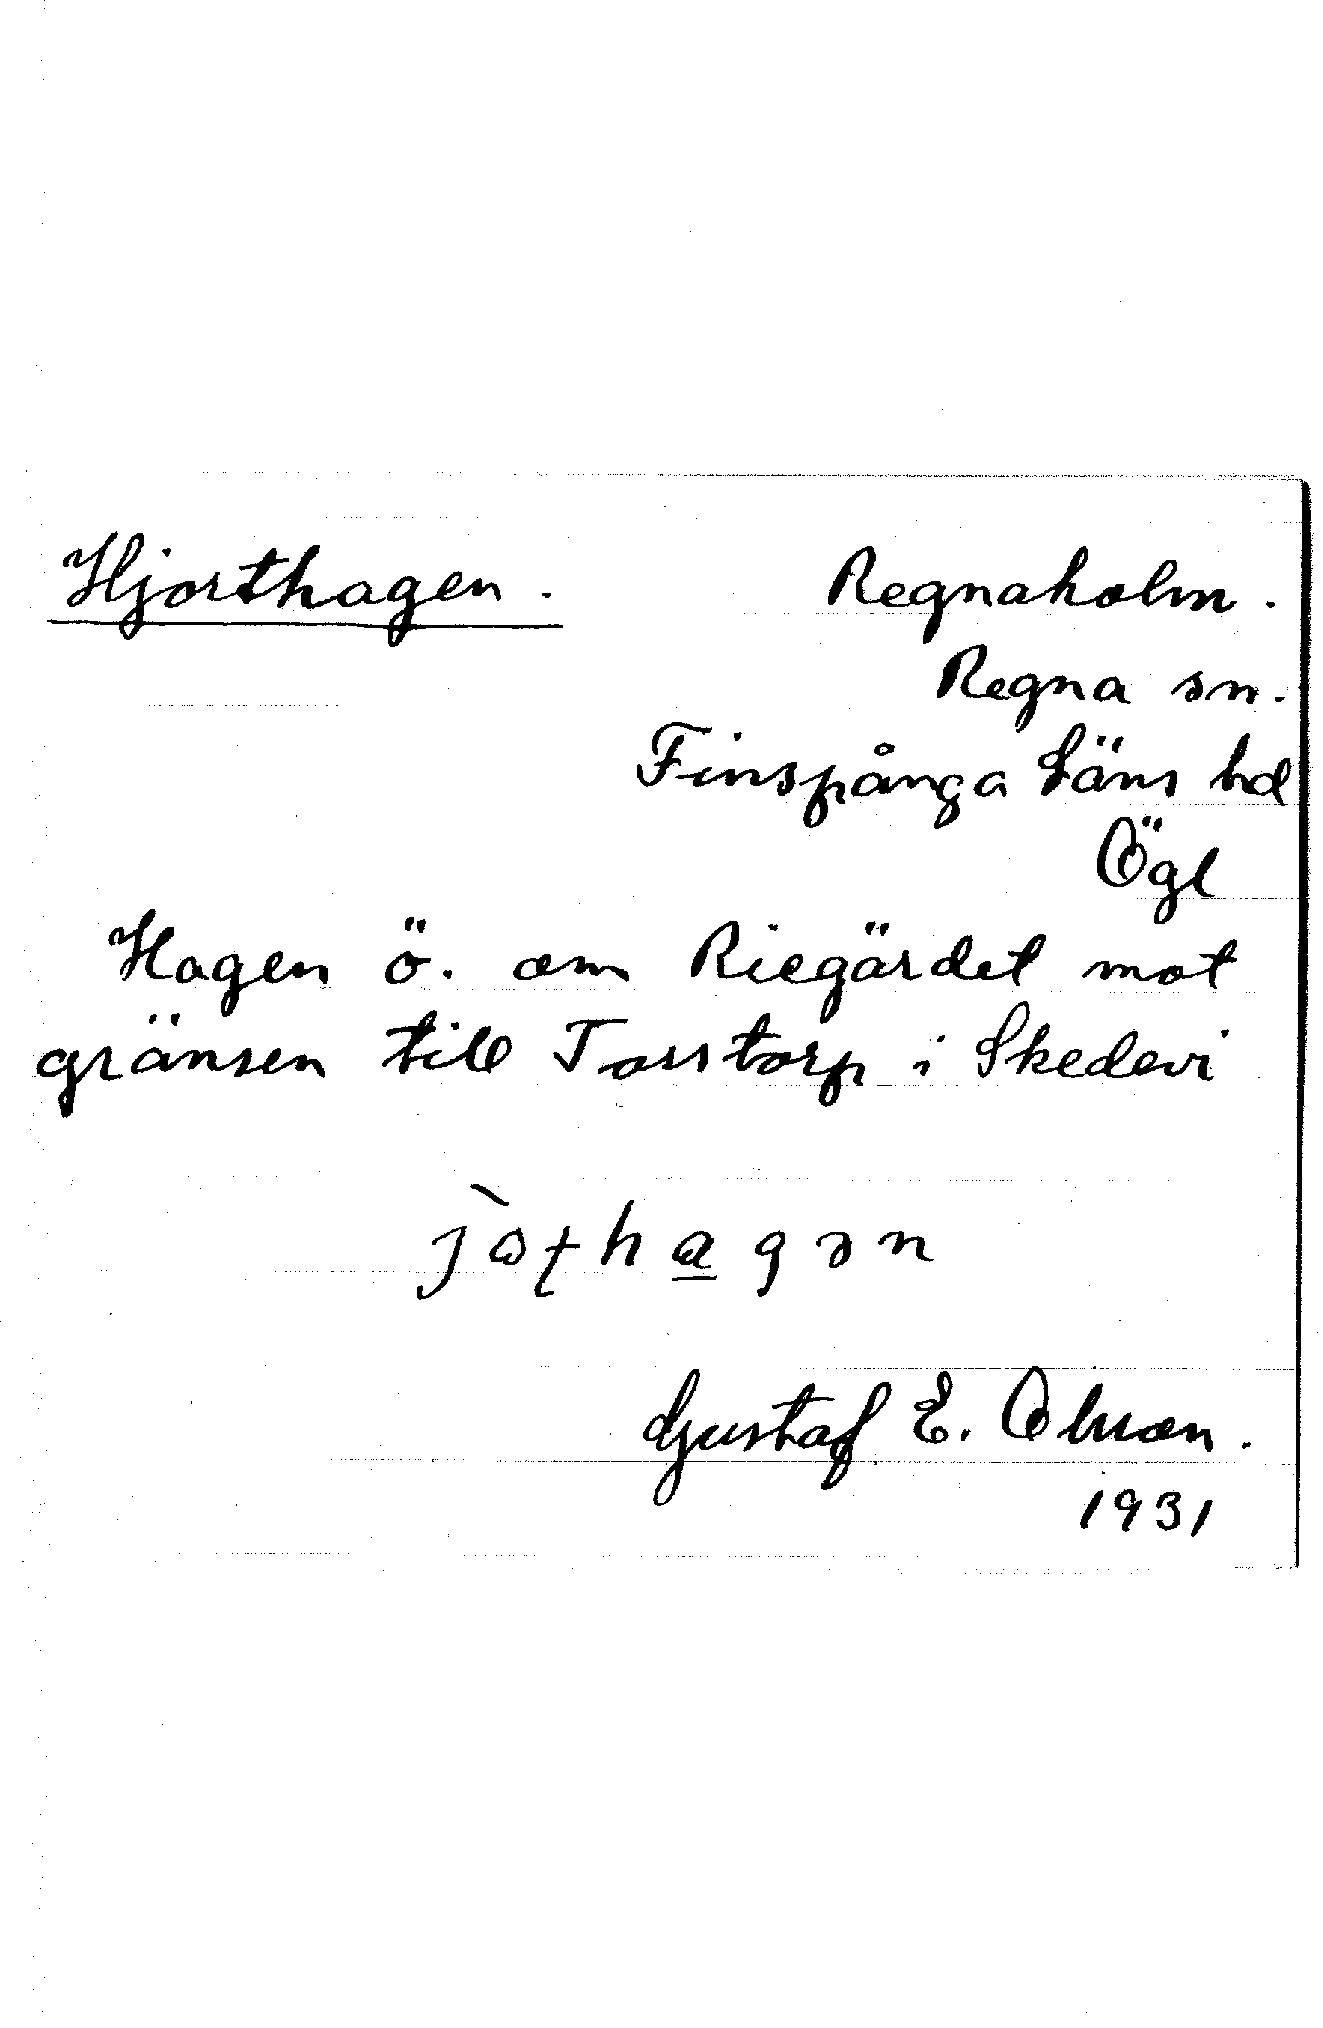 Hjorthagen.
Regnaholm.
Regna sn.
Finspånga Läns hd
Ögl
Hagen ö. om Riegärdet mot
gränsen till Torstorp i Skedevi
jòʈhagən
Gustaf E. Olsson.
1931